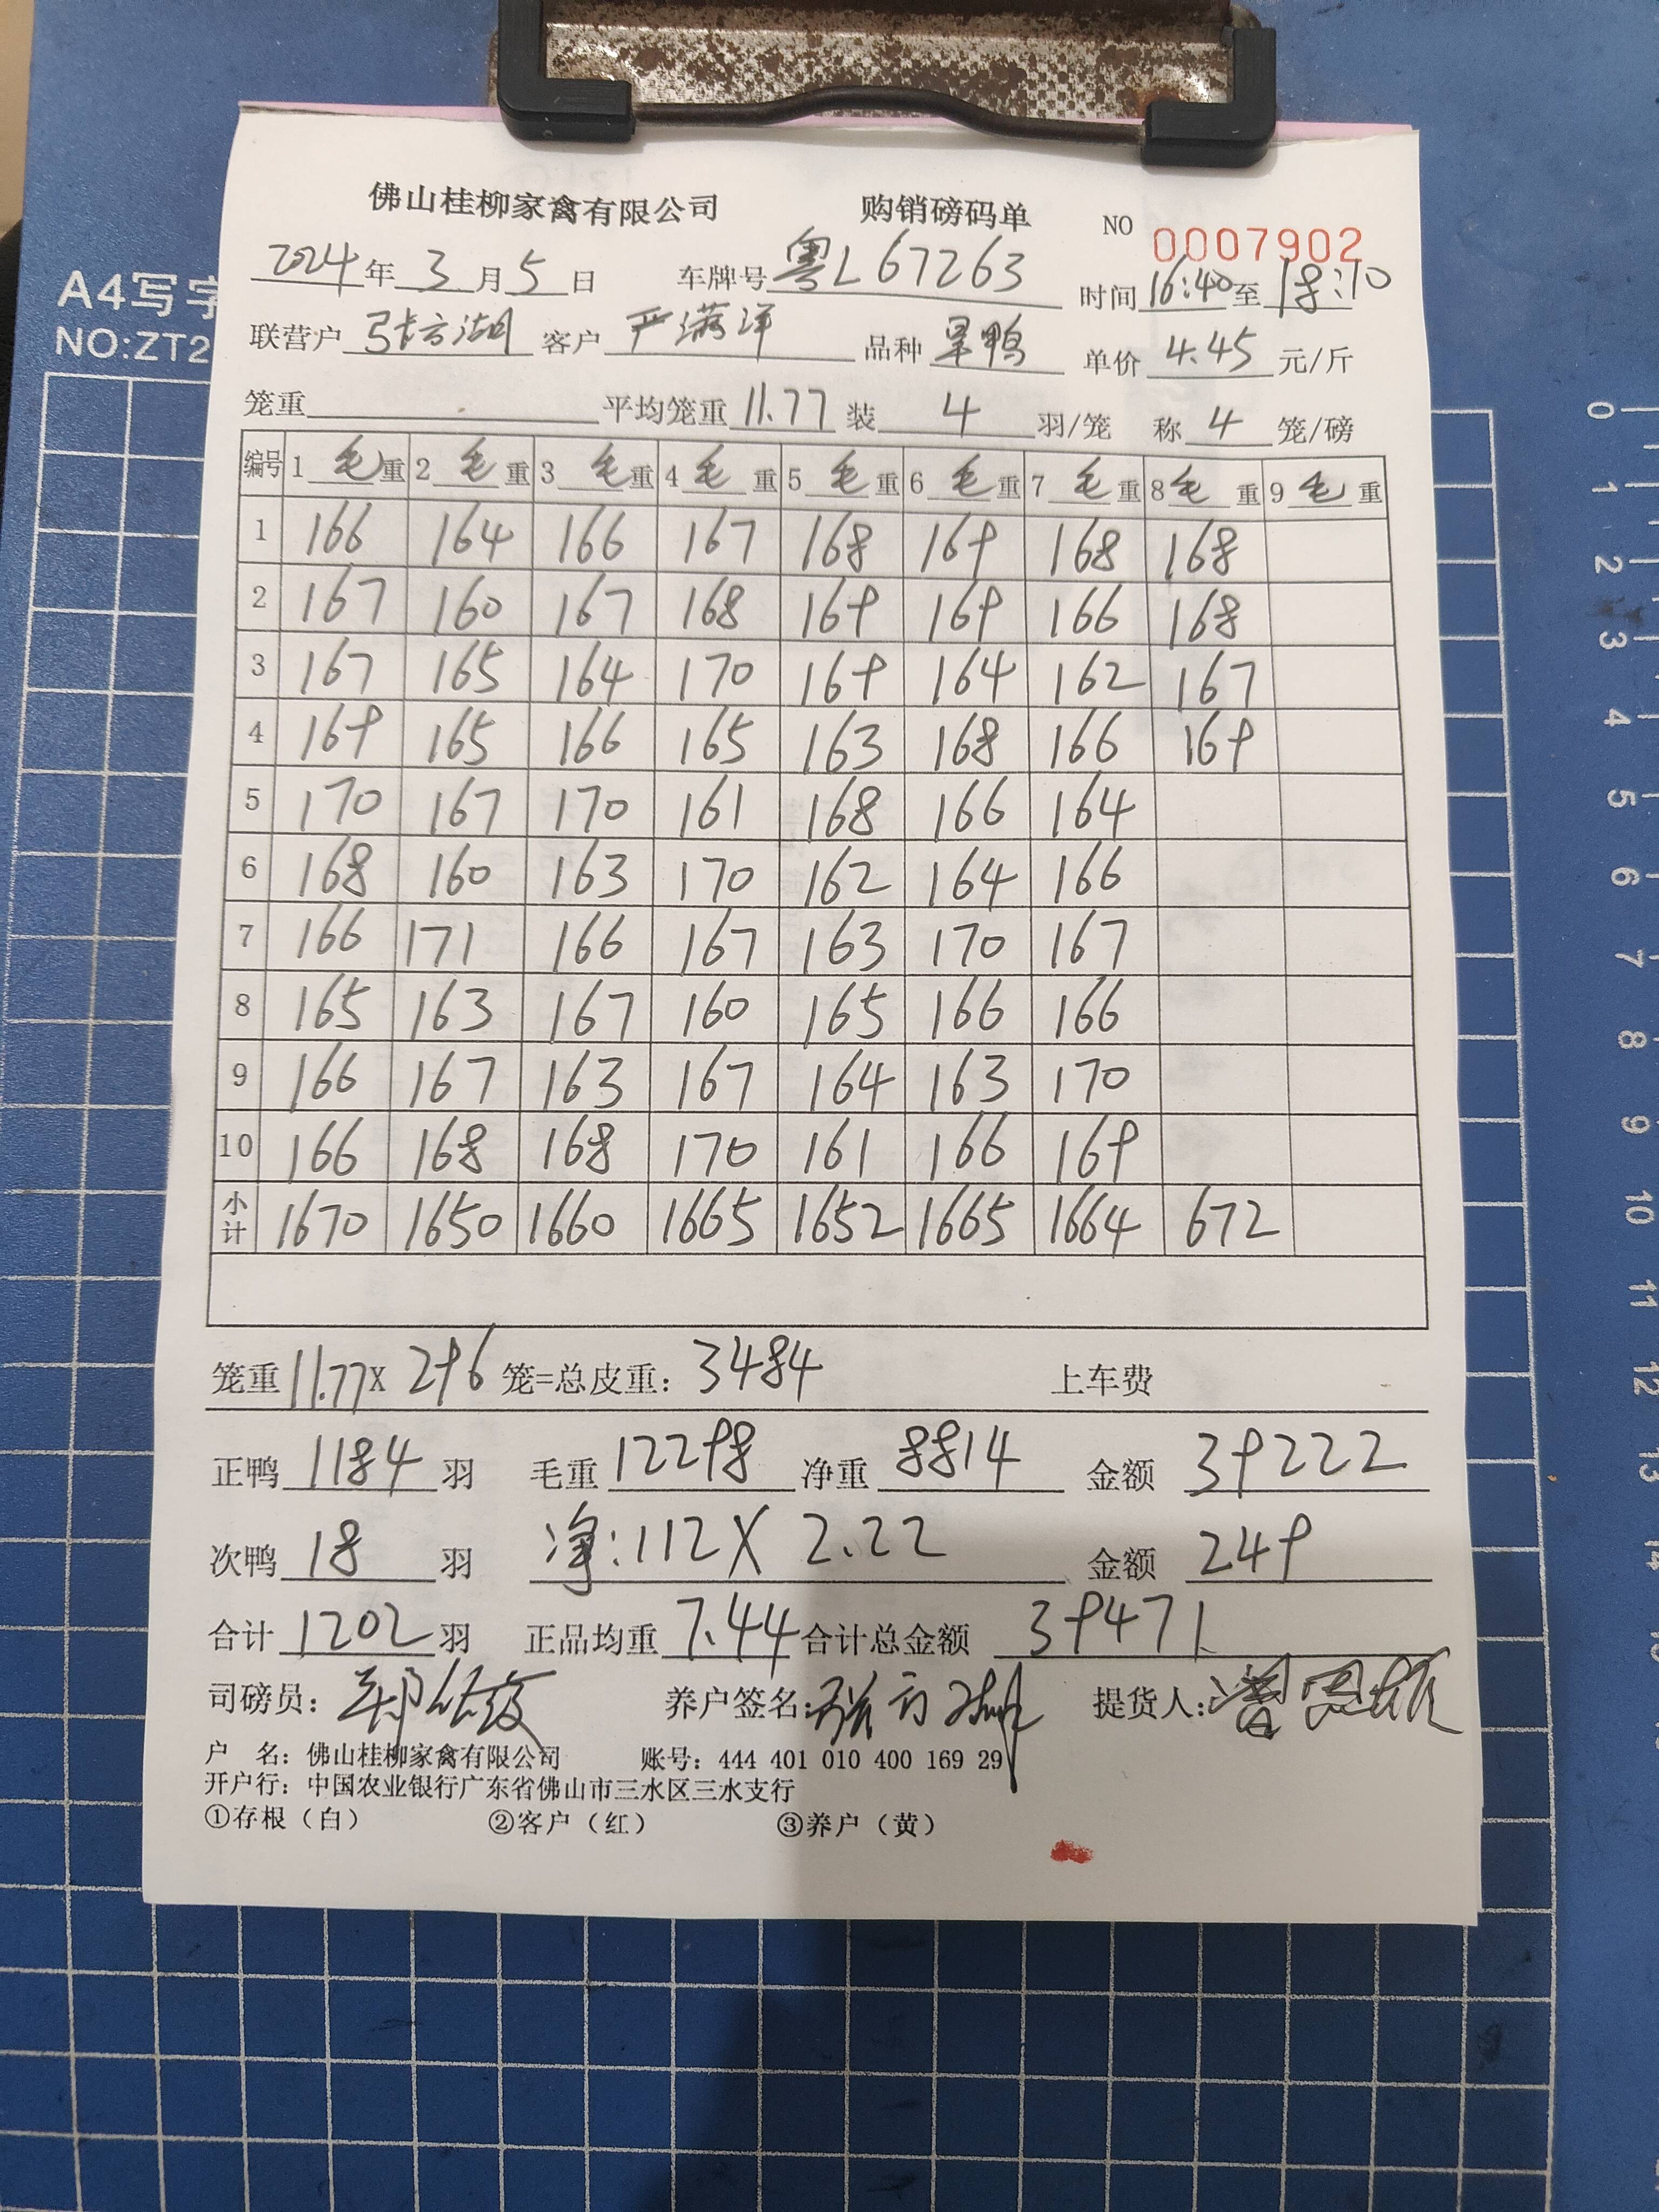 佛山桂柳家禽有限公司 购销磅码单 NO 0007902
2024年3月5日 车牌号 粤L67263 时间16:40至18:10
联营户 张方湖 客户 严满洋 品种 旱鸭 单价 4.45 元/斤
笼重 平均笼重 11.77 装 4 羽/笼 称 4 笼/磅
编号 1 毛重 2 毛重 3 毛重 4 毛重 5 毛重 6 毛重 7 毛重 8 毛重 9 毛重
1 166 164 166 167 168 169 168 168
2 167 160 167 168 169 169 166 168
3 167 165 164 170 169 164 162 167
4 169 165 166 165 163 168 166 169
5 170 167 170 161 168 166 164
6 168 160 163 170 162 164 166
7 166 171 166 167 163 170 167
8 165 163 167 160 165 166 166
9 166 167 163 167 164 163 170
10 166 168 168 170 161 166 169
小计 1670 1650 1660 1665 1652 1665 1664 672
笼重 11.77 X 296 笼=总皮重: 3484 上车费
正鸭 1184 羽 毛重 12298 净重 8814 金额 39222
次鸭 18 羽 净:112X 2.22 金额 249
合计 1202 羽 正品均重 7.44 合计总金额 39471
司磅员: 养户签名: 张方湖 提货人:
户 名: 佛山桂柳家禽有限公司 账号: 444 401 010 400 169 29
开户行: 中国农业银行广东省佛山市三水区三水支行
①存根(白) ②客户(红) ③养户(黄)
A4写字
NO:ZT2
0
1
2
3
4
5
6
7
8
9
10
11
12
13
14